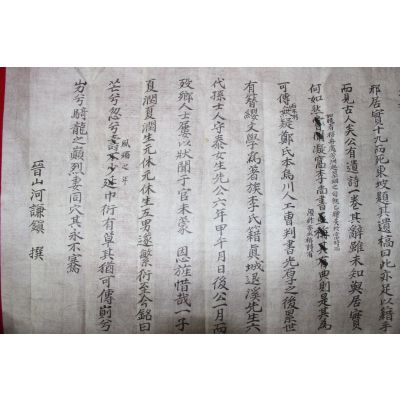 邢居實十九而死東坡題其遺稿曰此亦足以籍手
而見古人矣公有遺詩一卷其辭雖未知與居實
何如然
可傳 鄭氏本烏川人工曹判書光厚之後累世
有簪纓文學為著族李氏籍眞城退溪先生六
代孫士人守泰女生先公六年甲午月日後公一月而
歿鄉人士屢以狀聞于官未蒙 恩旌惜哉一子
夏潤夏潤生元休元休生五男遂繁衍至今銘曰
芒兮忽兮 少延中衍有草其猶可傳前兮
岃兮騎龍之巔烈妻同穴其永不騫
晉山河謙鎮 撰